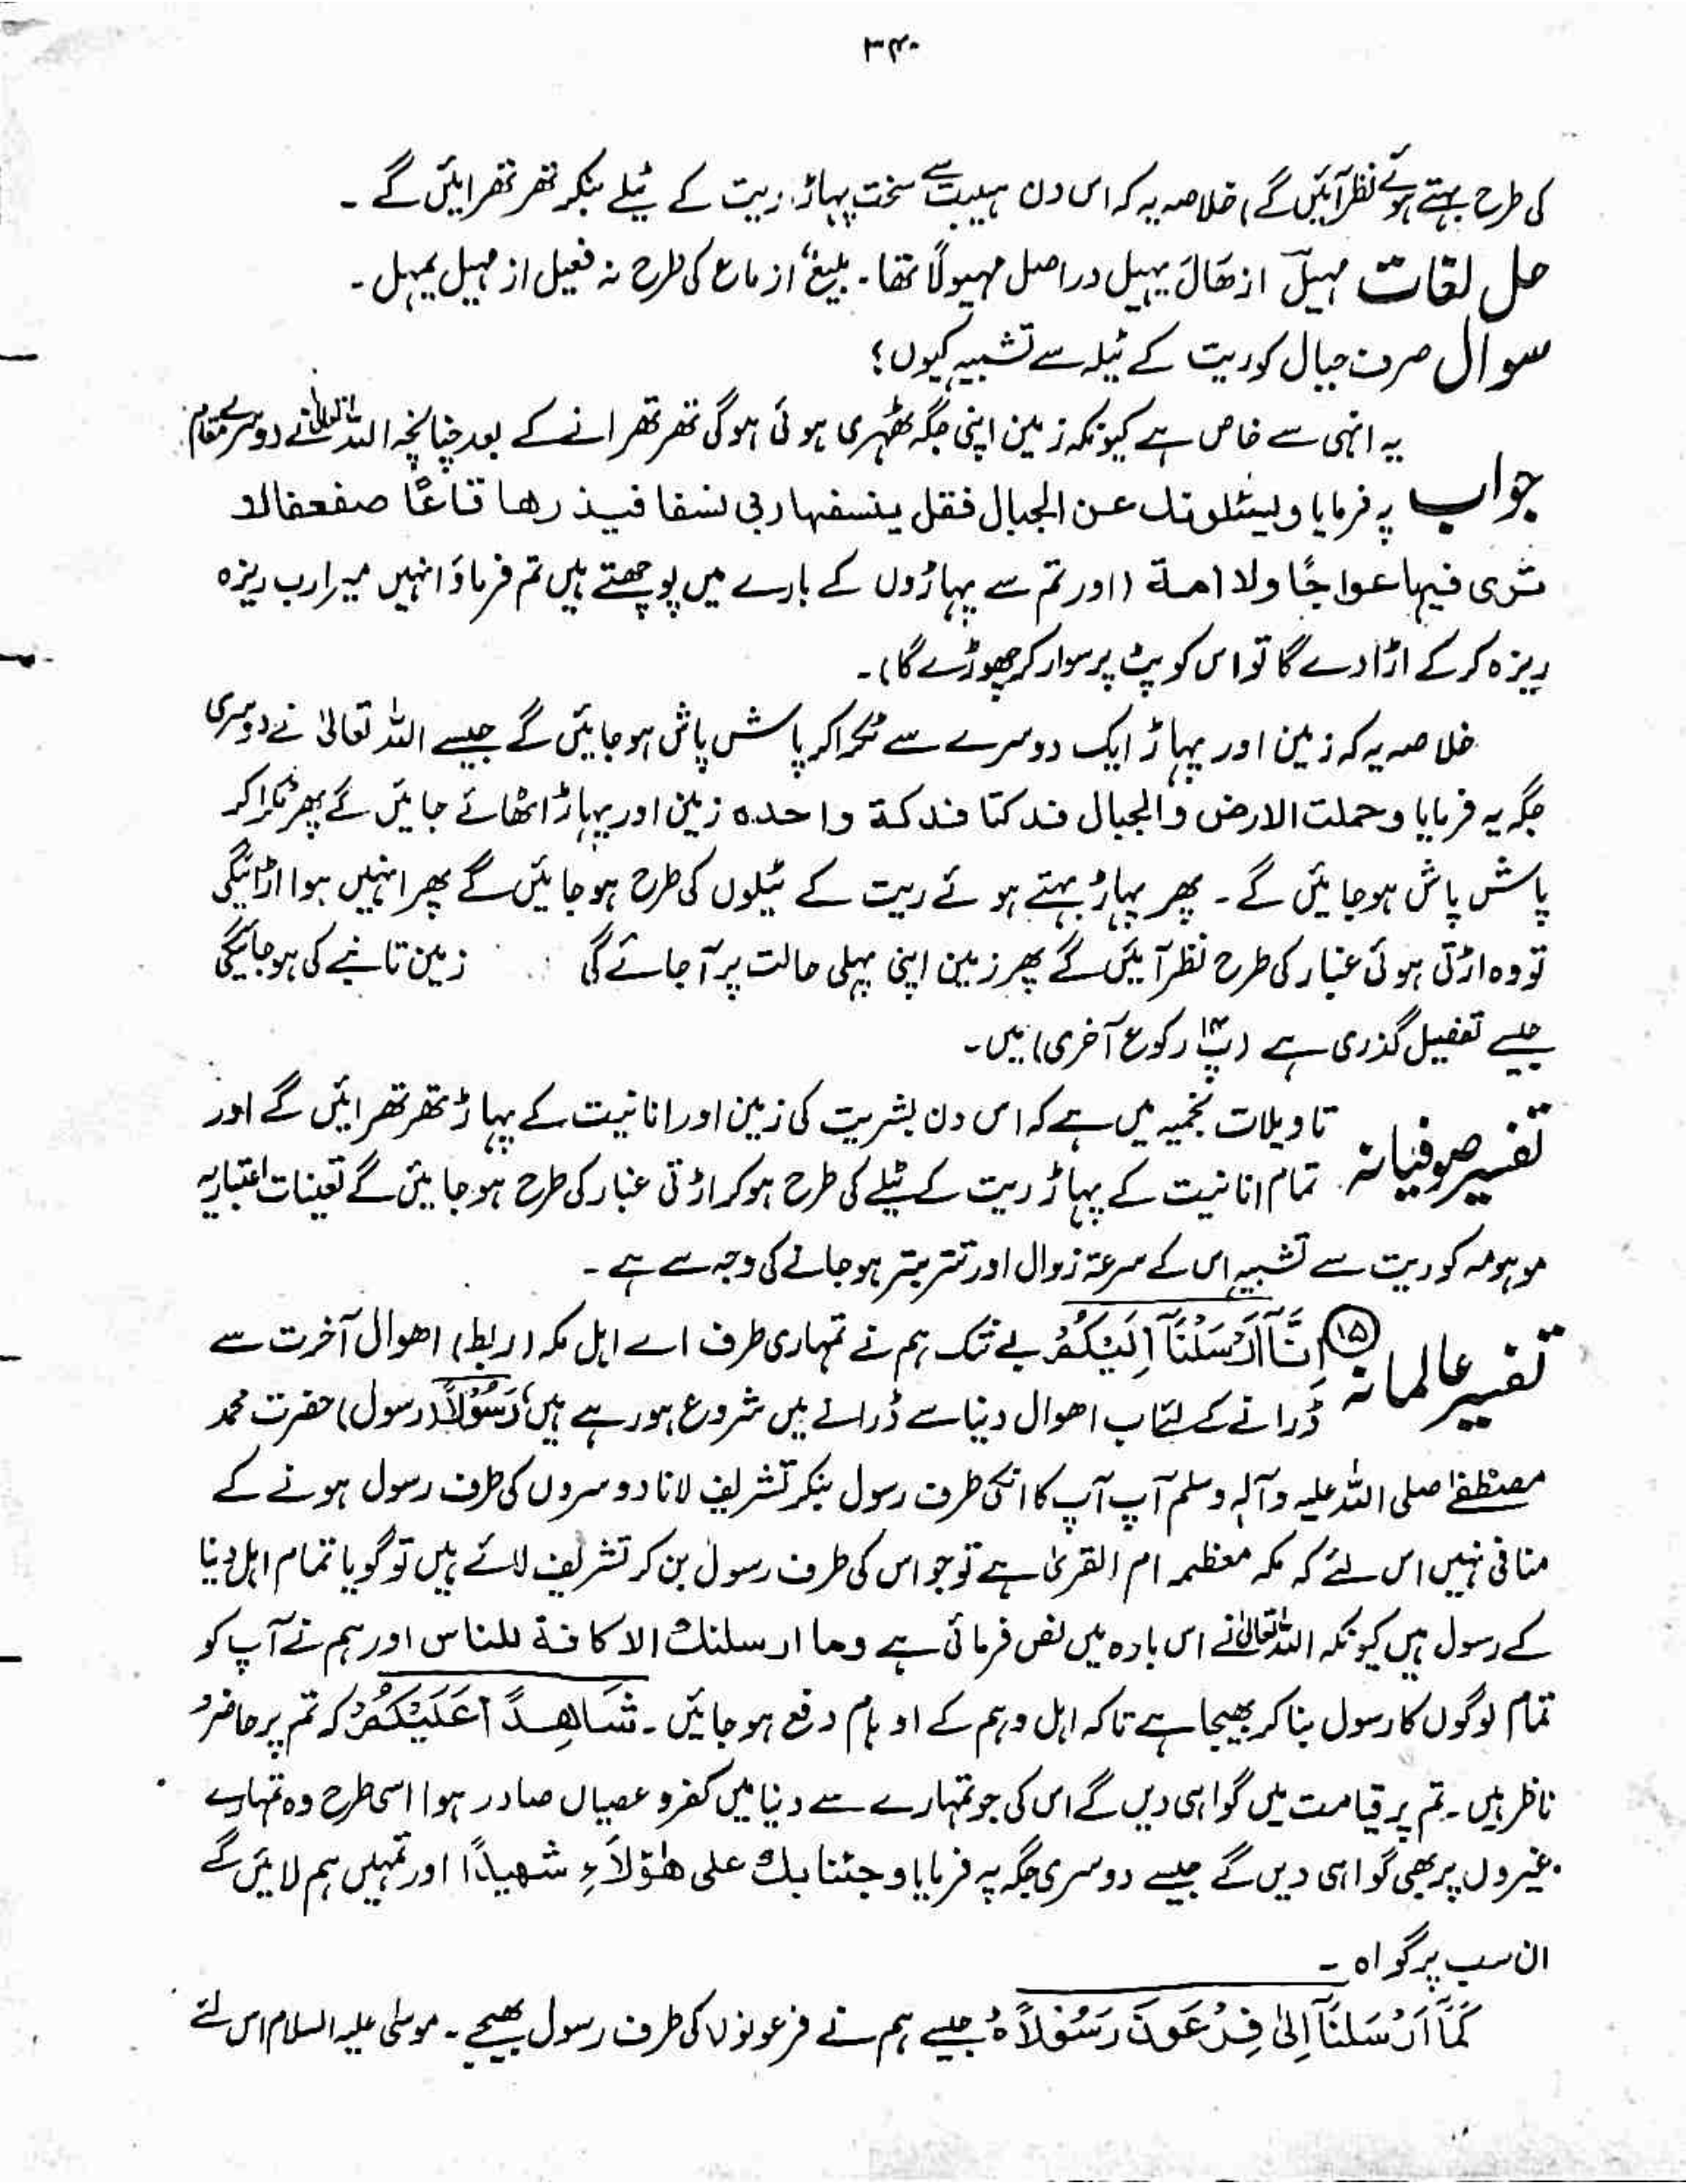 ۳۴۰
کی طرح بہتے ہوئے نظر آئیں گے) خلاصہ یہ کہ اس دن ہیبت سے سخت پہاڑ ریت کے ٹیلے بنکر تھر تھرائیں گے ۔
حل لغات مہیلًا از ھَالَ یہیل دراصل مہیولاً تھا ۔ بلیغ، از ماع کی طرح نہ فعیل از مہیل یمہل ۔
سوال صرف جبال کو ریت کے ٹیلہ سے تشبیہ کیوں؟
یہ انہی سے خاص ہے کیونکہ زمین اپنی جگہ ٹھہری ہوئی ہوگی تھر تھرانے کے بعد چنانچہ اللہ تعالیٰ نے دوسرے مقام
جواب پہ فرمایا ویسئلونك عن الجبال فقل ینسفہا ربی نسفا فیذرھا قاعًا صفصفالا
تری فیہا عواجًا ولا امتہ (اور تم سے پہاڑوں کے بارے میں پوچھتے ہیں تم فرماؤ انہیں میرا رب ریزہ
ریزہ کر کے اڑا دے گا تو اس کو پٹ پر سوار کر چھوڑے گا)۔
خلاصہ یہ کہ زمین اور پہاڑ ایک دوسرے سے ٹکرا کر پاش پاش ہو جائیں گے جیسے اللہ تعالیٰ نے دوسری
جگہ یہ فرمایا وحملت الارض والجبال فدکتا فدکة واحدہ زمین اور پہاڑ اٹھائے جائیں گے پھر ٹکرا کر
پاش پاش ہو جائیں گے ۔ پھر پہاڑ بہتے ہوئے ریت کے ٹیلوں کی طرح ہو جائیں گے پھر انہیں ہوا اڑائیگی
تو وہ اڑتی ہوئی غبار کی طرح نظر آئیں گے پھر زمین اپنی پہلی حالت پر آ جائے گی زمین تانبے کی ہو جائیگی
جیسے تفصیل گذری ہے (پ۱۳ رکوع آخری) میں ۔
تاویلات نجمیہ میں ہے کہ اس دن بشریت کی زمین اور انانیت کے پہاڑ تھر تھرائیں گے اور
تفسیر صوفیانہ تمام انانیت کے پہاڑ ریت کے ٹیلے کی طرح ہو کر اڑتی غبار کی طرح ہو جائیں گے تعینات اعتباریہ
موہومہ کو ریت سے تشبیہ اس کے سرعتہ زوال اور تتر بتر ہو جانے کی وجہ سے ہے ۔
تفسیر عالمانہ ⑮ اِنَّآ اَرْسَلْنَآ اِلَیْکُمْ بے شک ہم نے تمہاری طرف اے اہل مکہ (ربط) اھوال آخرت سے
ڈرانے کے لئے اب اھوال دنیا سے ڈرانے میں شروع ہو رہے ہیں، رَسُوْلًا (رسول) حضرت محمد
مصطفےٰ صلی اللہ علیہ وآلہ وسلم آپ آپ کا انکی طرف رسول بنکر تشریف لانا دوسروں کی طرف رسول ہونے کے
منافی نہیں اس لئے کہ مکہ معظمہ ام القریٰ ہے تو جو اس کی طرف رسول بن کر تشریف لائے ہیں تو گویا تمام اہل دنیا
کے رسول ہیں کیونکہ اللہ تعالیٰ نے اس بارہ میں نص فرمائی ہے وما ارسلنك الا کافة للناس اور ہم نے آپ کو
تمام لوگوں کا رسول بنا کر بھیجا ہے تاکہ اہل وہم کے اوہام دفع ہو جائیں ۔ شَاھِدًا عَلَیْکُمْ کہ تم پر حاضر و
ناظر ہیں ۔ تم پر قیامت میں گواہی دیں گے اس کی جو تمہارے سے دنیا میں کفر و عصیاں صادر ہوا اسی طرح وہ تمہارے
غیروں پر بھی گواہی دیں گے جیسے دوسری جگہ پہ فرمایا وجئنا بك علی ھٰؤلاَءِ شھیدًا اور تمہیں ہم لائیں گے
ان سب پر گواہ ۔
کَمَآ اَرْسَلْنَآ اِلیٰ فِرْعَوْنَ رَسُوْلًا ہ جیسے ہم نے فرعونوں کی طرف رسول بھیجے ۔ موسیٰ علیہ السلام اس لئے